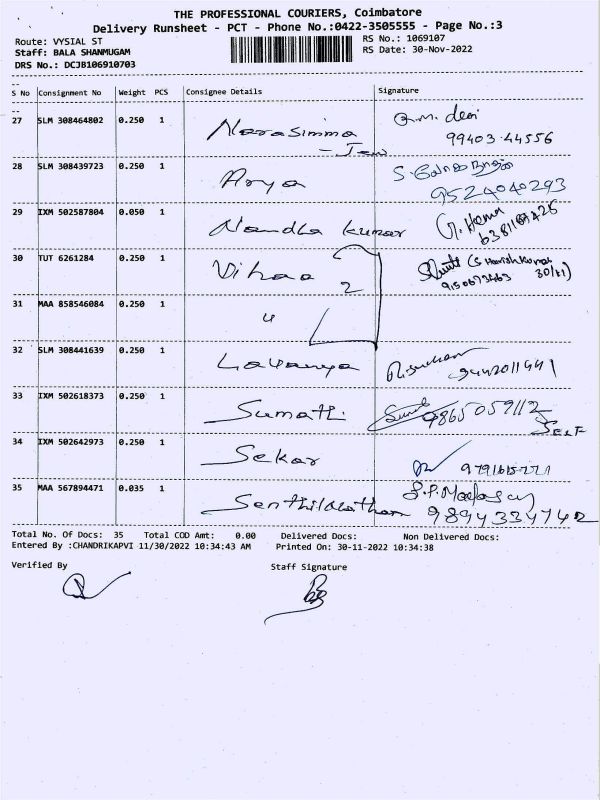 THE PROFESSIONAL COURIERS, Coimbatore
Delivery Runsheet - PCT - Phone No.:0422-3505555 - Page No.:3
Route: VYSIAL ST
RS No.: 1069107
Staff: BALA SHANMUGAM
RS Date: 30-Nov-2022
DRS No.: DCJB106910703
S No Consignment No Weight PCS Consignee Details Signature
27 SLM 308464802 0.250 1 Narasimma
99403-44556
28 SLM 308439723 0.250 1 Arya
9524040293
29 IXM 502587804 0.050 1 Nandha Kumar G. Hema
6381169425
30 TUT 6261284 0.250 1 2 (S Harish Kumar
9150673463 30/11)
31 MAA 858546084 0.250 1 "
32 SLM 308441639 0.250 1 Lavanya
9442011441
33 IXM 502618373 0.250 1 Sumathi 9865059112
SELF
34 IXM 502642973 0.250 1 Sekar
9791615-221
35 MAA 567894471 0.035 1
9894334742
Total No. Of Docs: 35 Total COD Amt: 0.00 Delivered Docs: Non Delivered Docs:
Entered By :CHANDRIKAPVI 11/30/2022 10:34:43 AM Printed On: 30-11-2022 10:34:38
Verified By Staff Signature